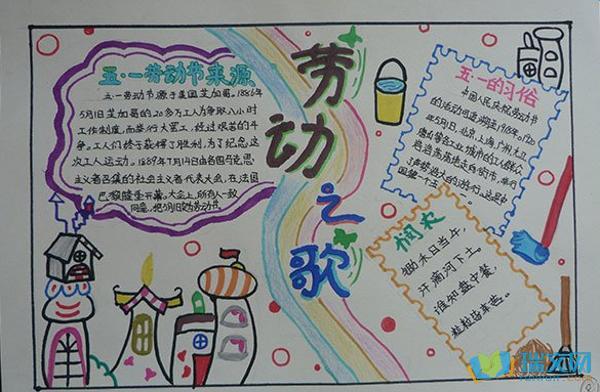 五·一劳动节来源
五·一劳动节源于美国芝加哥。1886年
5月1日芝加哥的20多万工人为争取八小时
工作制度,而举行大罢工,经过艰苦的斗
争。工人们终于获得了胜利,为了纪念这
次工人运动。1889年7月14日由各国马克思
主义者召集的社会主义者代表大会,在法国
巴黎隆重开幕。大会上,所有人一致
同意,把5月1日
劳动之歌
五·一的习俗
中国人民庆祝劳动节
的活动可追溯至1918年。1920
年5月1日,北京、上海、广州、九江、
唐山等各工业城市的工人群众
浩浩荡荡地走向街市,举行
了声势浩大的游行。这是中
国第一个
悯农
锄禾日当午,
汗滴河下土。
谁知盘中餐,
粒粒皆辛苦。
瑞文网